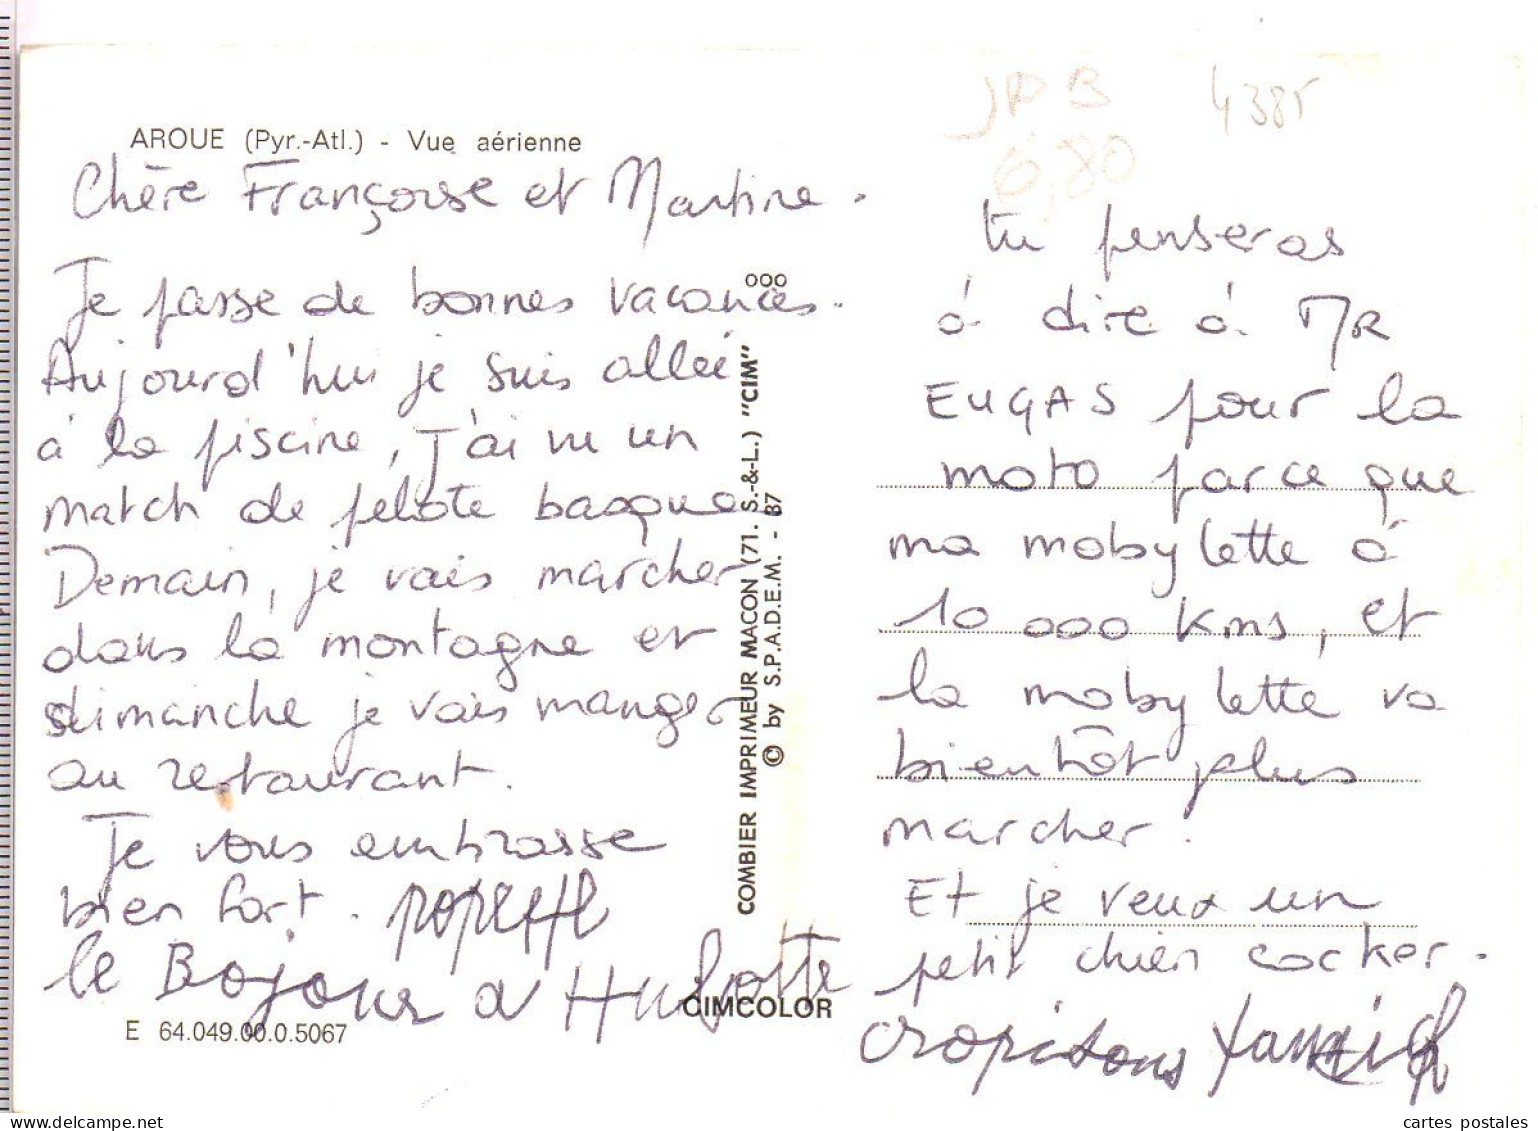 AROUE (Pyr.-Atl.) - Vue aérienne
Chère Françoise et Martine.
Je passe de bonnes vacances.
Aujourd'hui je suis allée
à la piscine, J'ai vu un
match de pelote basque
Demain, je vais marcher
dans la montagne et
dimanche je vais manger
au restaurant.
Je vous embrasse
bien fort. popette
le Bojour a Hubotte
E 64.049.00.0.5067
ooo
COMBIER IMPRIMEUR MACON (71. S.-&-L.) "CIM"
© by S.P.A.D.E.M. - 87
CIMCOLOR
JPB 4385
6,80
tu penseras
à dire à MR
EUGAS pour la
moto parce que
ma mobylette à
10 000 Kms, et
la mobylette va
bientôt plus
marcher.
Et je veux un
petit chien cocker.
cropisons Yannick
cartes postales